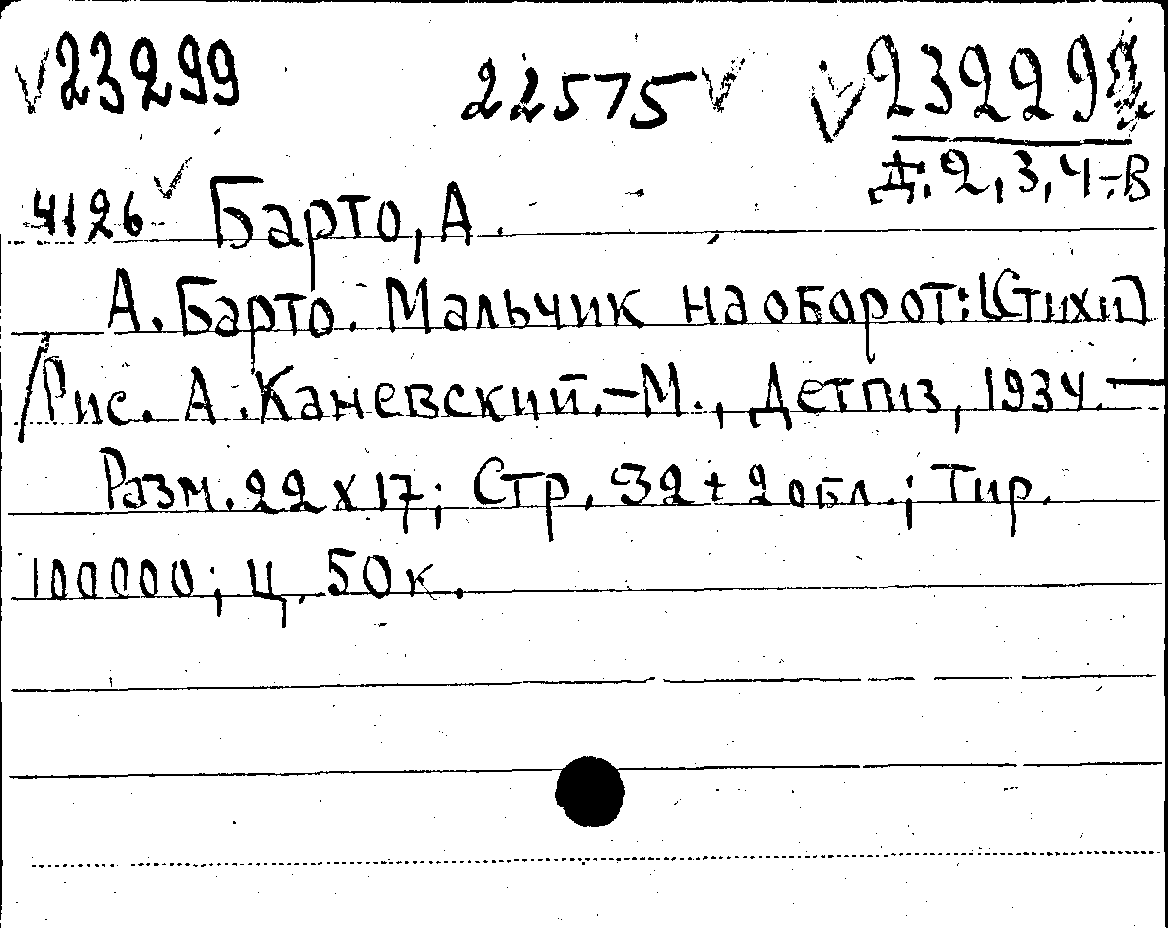 √23299 22575√ √23229
Д.2,3,4-В
4126√ Барто, А.
А. Барто. Мальчик наоборот: [Стихи]
/Рис. А. Каневский. – М., Детгиз, 1934. –
Разм. 22х17; Стр. 32 + 2 обл.; Тир.
100000; Ц. 50 к.